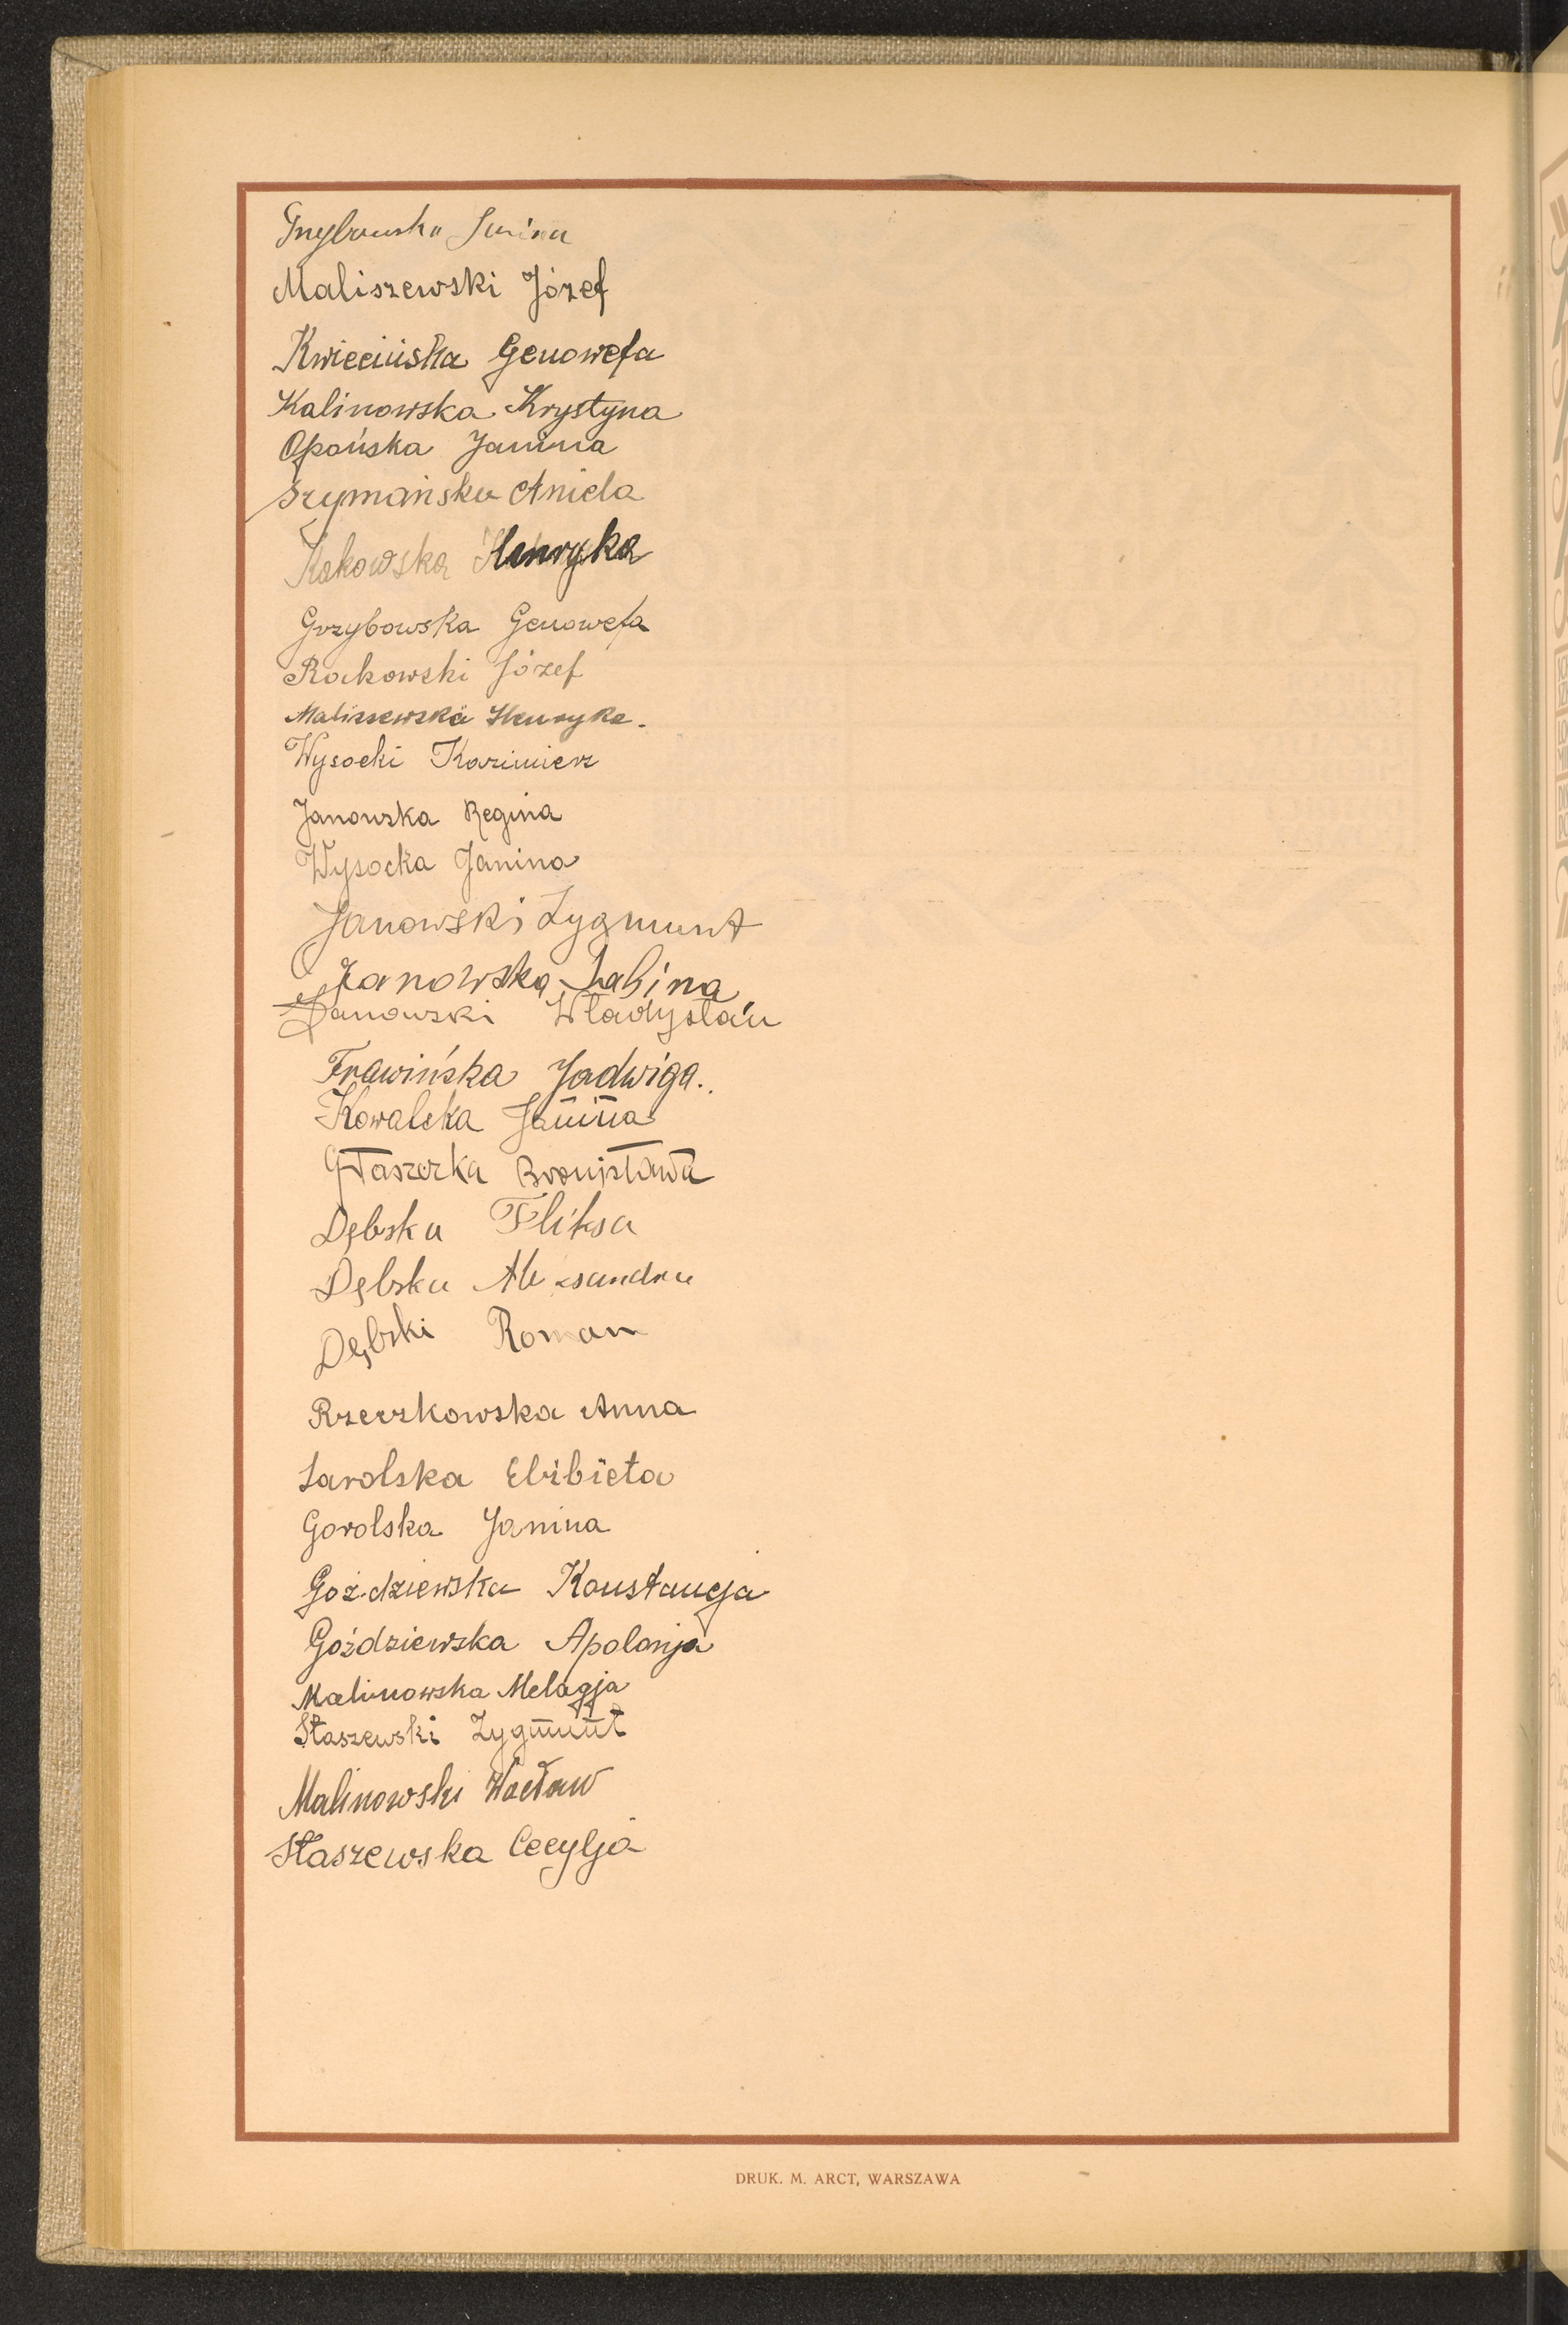 Grzybowska Janina
Maliszewski Józef
Kwiecińska Genowefa
Kalinowska Krystyna
Opańska Janina
Szymańska Aniela
Rakowska Henryka
Grzybowska Genowefa
Rakowski Józef
Maliszewska Henryka.
Wysocki Kazimierz
Janowska Regina
Wysocka Janina
Janowski Zygmunt
Janowska Sabina
Janowski Władysław
Trawińska Jadwiga.
Kowalska Janina
Głaszczka Bronisława
Dębska Fliksa
Dębska Aleksandra
Dębski Roman
Rzeczkowska Anna
Sarolska Elżbieta
Gorolska Janina
Goździewska Konstancja
Goździewska Apolonja
Malinowska Melagja
Staszewski Zygmunt
Malinowski Wacław
Staszewska Cecylja
DRUK. M. ARCT, WARSZAWA